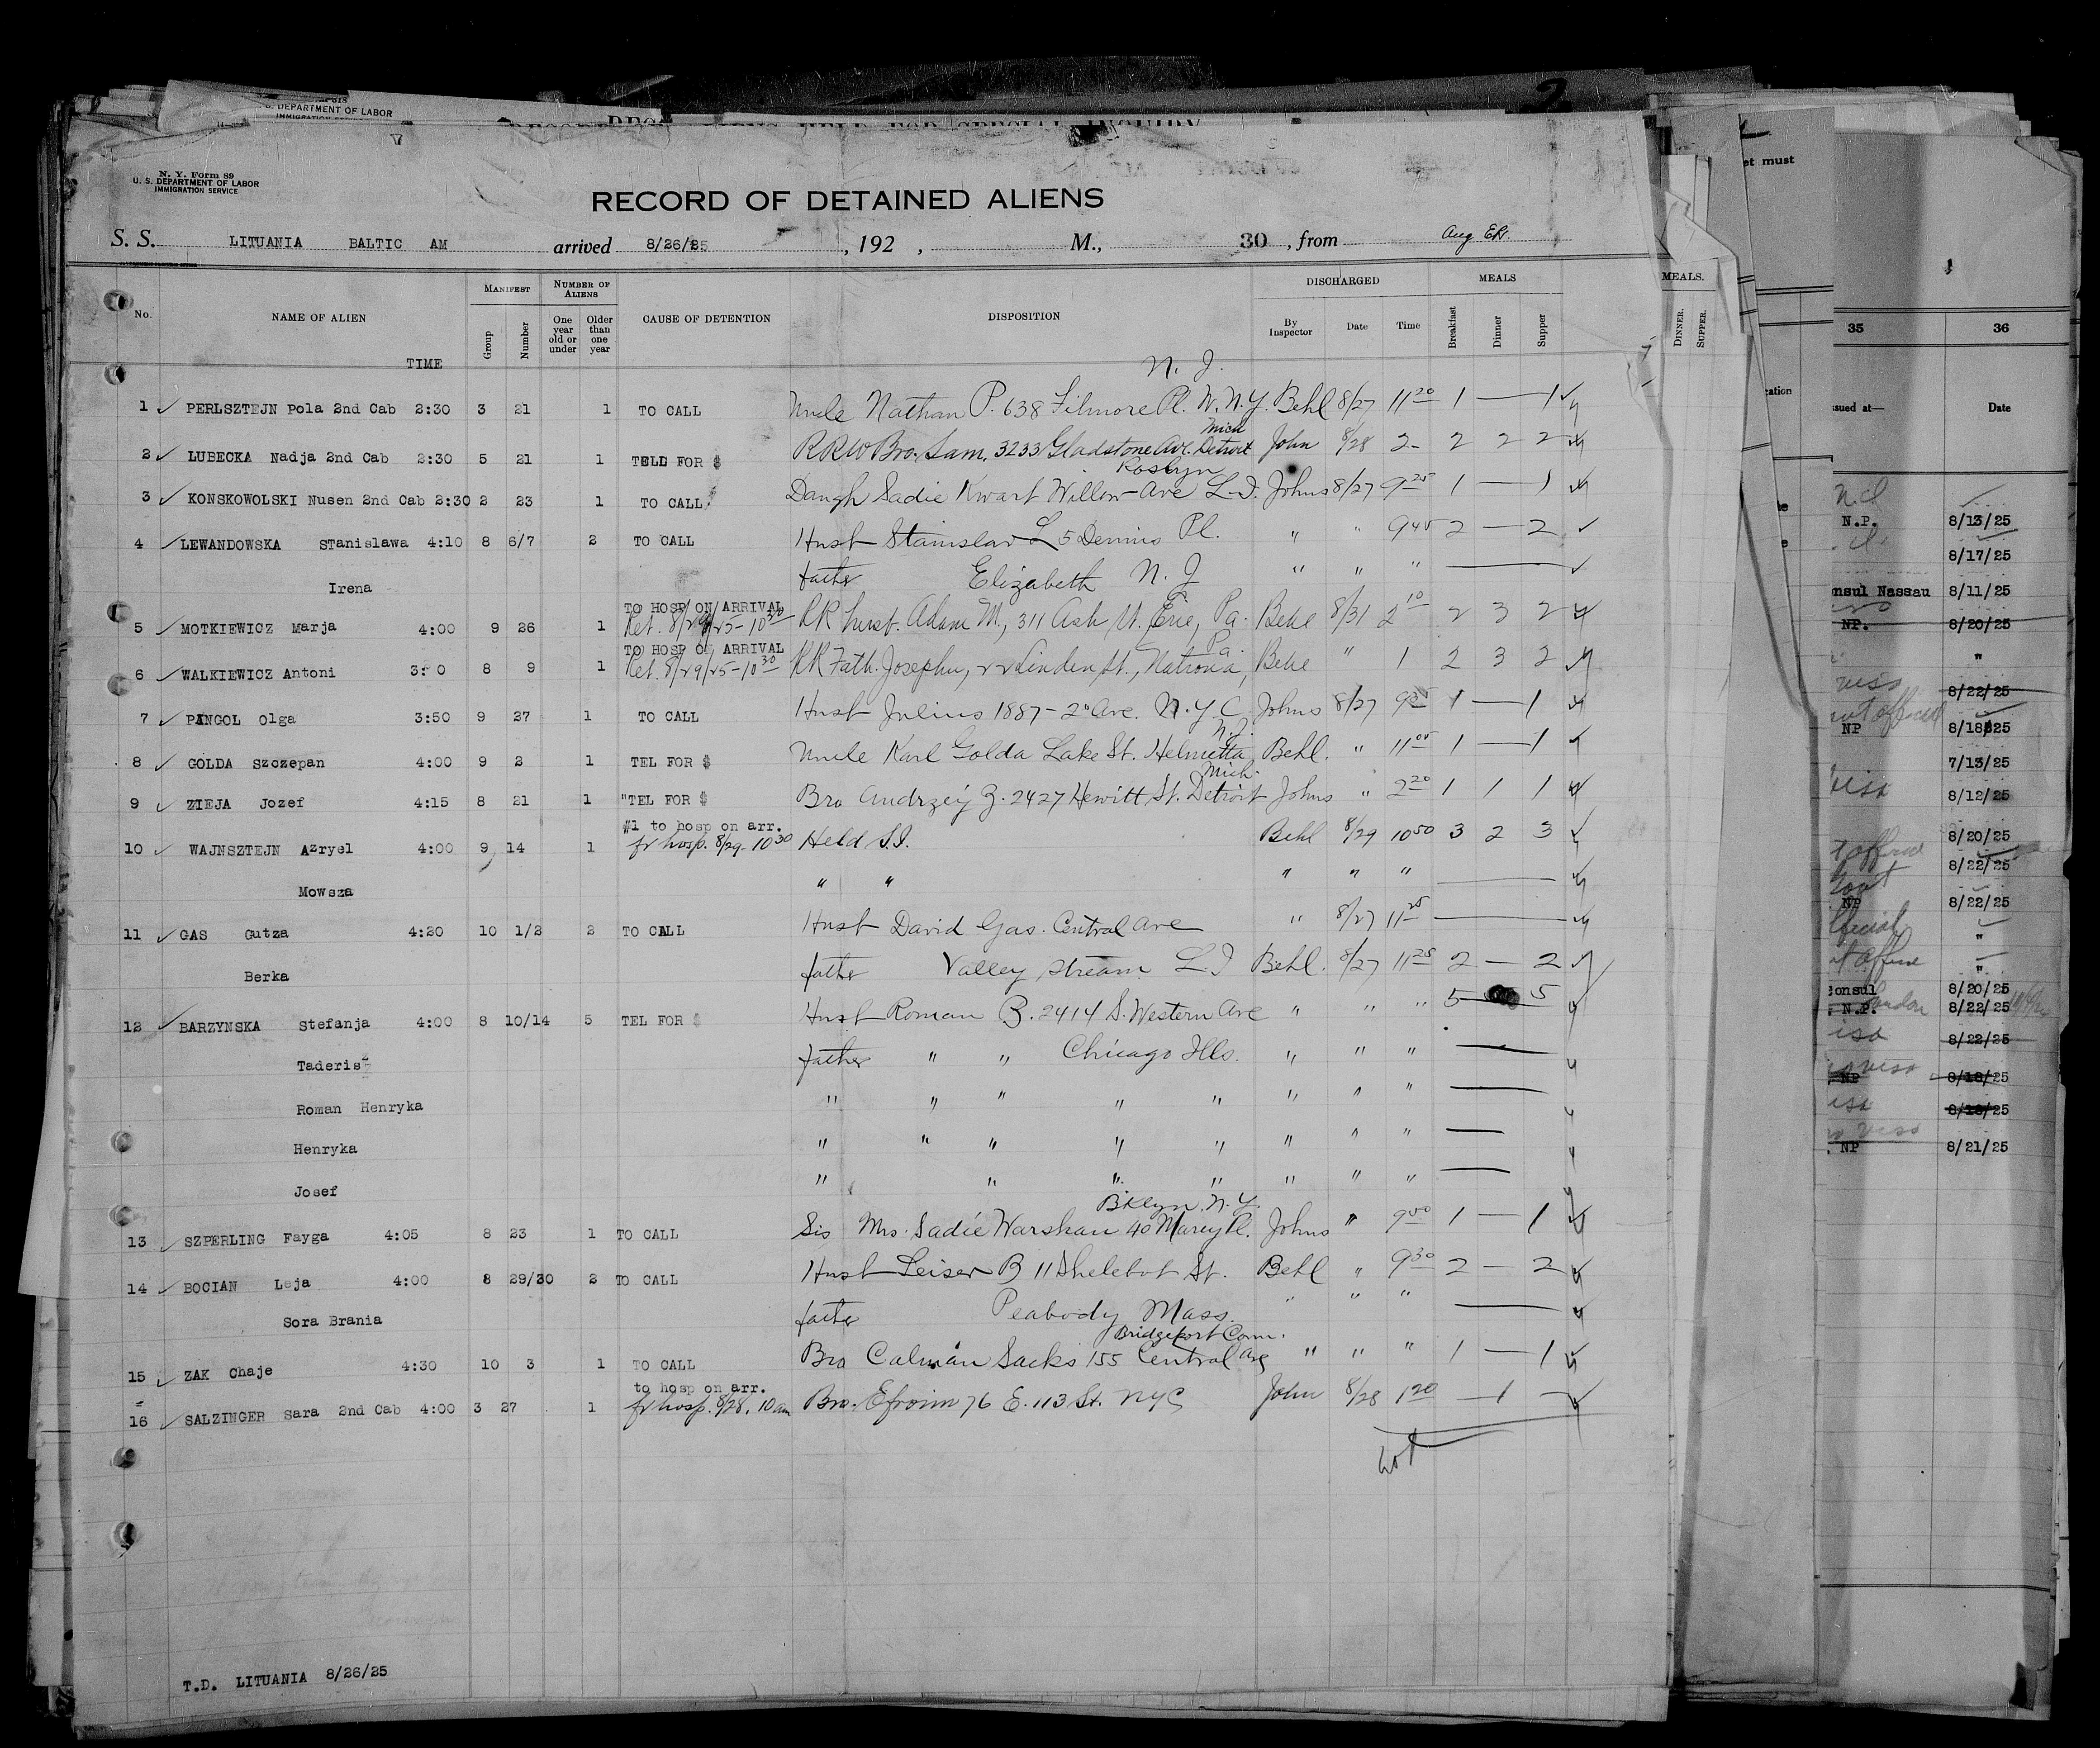 U. S. DEPARTMENT OF LABOR
N. Y. Form 89
U. S. DEPARTMENT OF LABOR
IMMIGRATION SERVICE
RECORD OF DETAINED ALIENS
S. S. LITUANIA BALTIC AM arrived 8/26/25, 192 , M., 30, from Aug
No. NAME OF ALIEN TIME MANIFEST Group Number NUMBER OF ALIENS One year old or under Older than one year CAUSE OF DETENTION DISPOSITION DISCHARGED By Inspector Date Time MEALS Breakfast Dinner Supper
N. J.
1 PERLSZTEJN Pola 2nd Cab 2:30 3 21 1 TO CALL Uncle Nathan P. 638 Filmore Pl. W. N. Y. Behl 8/27 11 20 1 — 1
Mich
2 LUBECKA Nadja 2nd Cab 2:30 5 21 1 TELL FOR $ RRW Bro. Sam. 3233 Gladstone Ave. Detroit John 8/28 2- 2 2 2
Roslyn
3 KONSKOWOLSKI Nusen 2nd Cab 2:30 2 23 1 TO CALL Daugh Sadie Kwart Willow-Ave L-I. Johns 8/27 9 25 1 — 1
4 LEWANDOWSKA STanislawa 4:10 8 6/7 2 TO CALL Husb Stanislaw L 5 Dennis Pl. " " 9 40 2 — 2
Irena father Elizabeth N. J " " "
TO HOSP ON ARRIVAL
5 MOTKIEWICZ Marja 4:00 9 26 1 Ret. 8/29/25-10 30 RR husb. Adam M., 311 Ash St. Erie, Pa. Behl 8/31 2 10 2 3 2
TO HOSP ON ARRIVAL Pa.
6 WALKIEWICZ Antoni 3: 0 8 9 1 Ret. 8/29/25-10 30 RR Fath. Joseph, 22 Linden St., Natrona, Behl " 1 2 3 2
7 PANGOL Olga 3:50 9 27 1 TO CALL Husb Julius 1887-2" Ave. N. Y C Johns 8/27 9 35 1 — 1
N. J.
8 GOLDA Szczepan 4:00 9 2 1 TEL FOR $ Uncle Karl Golda Lake St. Helmetta Behl. " 11 05 1 — 1
Mich.
9 ZIEJA Jozef 4:15 8 21 1 "TEL FOR $ Bro Andrzej Z. 2427 Hewitt St. Detroit Johns " 2 20 1 1 1
#1 to hosp on arr.
10 WAJNSZTEJN Azryel 4:00 9 14 1 fr hosp. 8/29- 10 30 Held S.I. Behl 8/29 10 50 3 2 3
Mowsza " " " " "
11 GAS Gutza 4:20 10 1/2 2 TO CALL Husb David Gas. Central Ave " 8/27 11 25
Berka father Valley Stream L. I Behl. 8/27 11 25 2 — 2
12 BARZYNSKA Stefanja 4:00 8 10/14 5 TEL FOR $ Husb Roman B. 2414 S. Western Ave " " " 5 5
Taderis father " " Chicago Ills. " " "
Roman Henryka " " " " " " " "
Henryka " " " " " " " "
Josef " " " " " " "
Bklyn. N. Y.
13 SZPERLING Fayga 4:05 8 23 1 TO CALL Sis Mrs. Sadie Warshau 40 Marcy Pl. Johns " 9 00 1 — 1
14 BOCIAN Leja 4:00 8 29/30 2 TO CALL Husb Leiser B 11 Shelebot St. Behl " 9 30 2 — 2
Sora Brania father Peabody Mass. " " "
Bridgeport Conn.
15 ZAK Chaje 4:30 10 3 1 TO CALL Bro Calman Sacks 155 Central Ave " " " 1 — 1
to hosp on arr.
16 SALZINGER Sara 2nd Cab 4:00 3 27 1 fr hosp. 8/28. 10 am Bro. Efroim 76 E. 113 St. NYC John 8/28 1 20 — 1 —
T.D. LITUANIA 8/26/25
MEALS.
DINNER. SUPPER.
et must
35 36
Date
N.P. 8/13/25
8/17/25
Nassau 8/11/25
NP. 8/20/25
"
8/22/25
NP 8/18/25
7/13/25
8/12/25
8/20/25
8/22/25
NP 8/22/25
"
"
8/20/25
N.P. 8/22/25
8/22/25
NP 8/18/25
8/18/25
NP 8/21/25